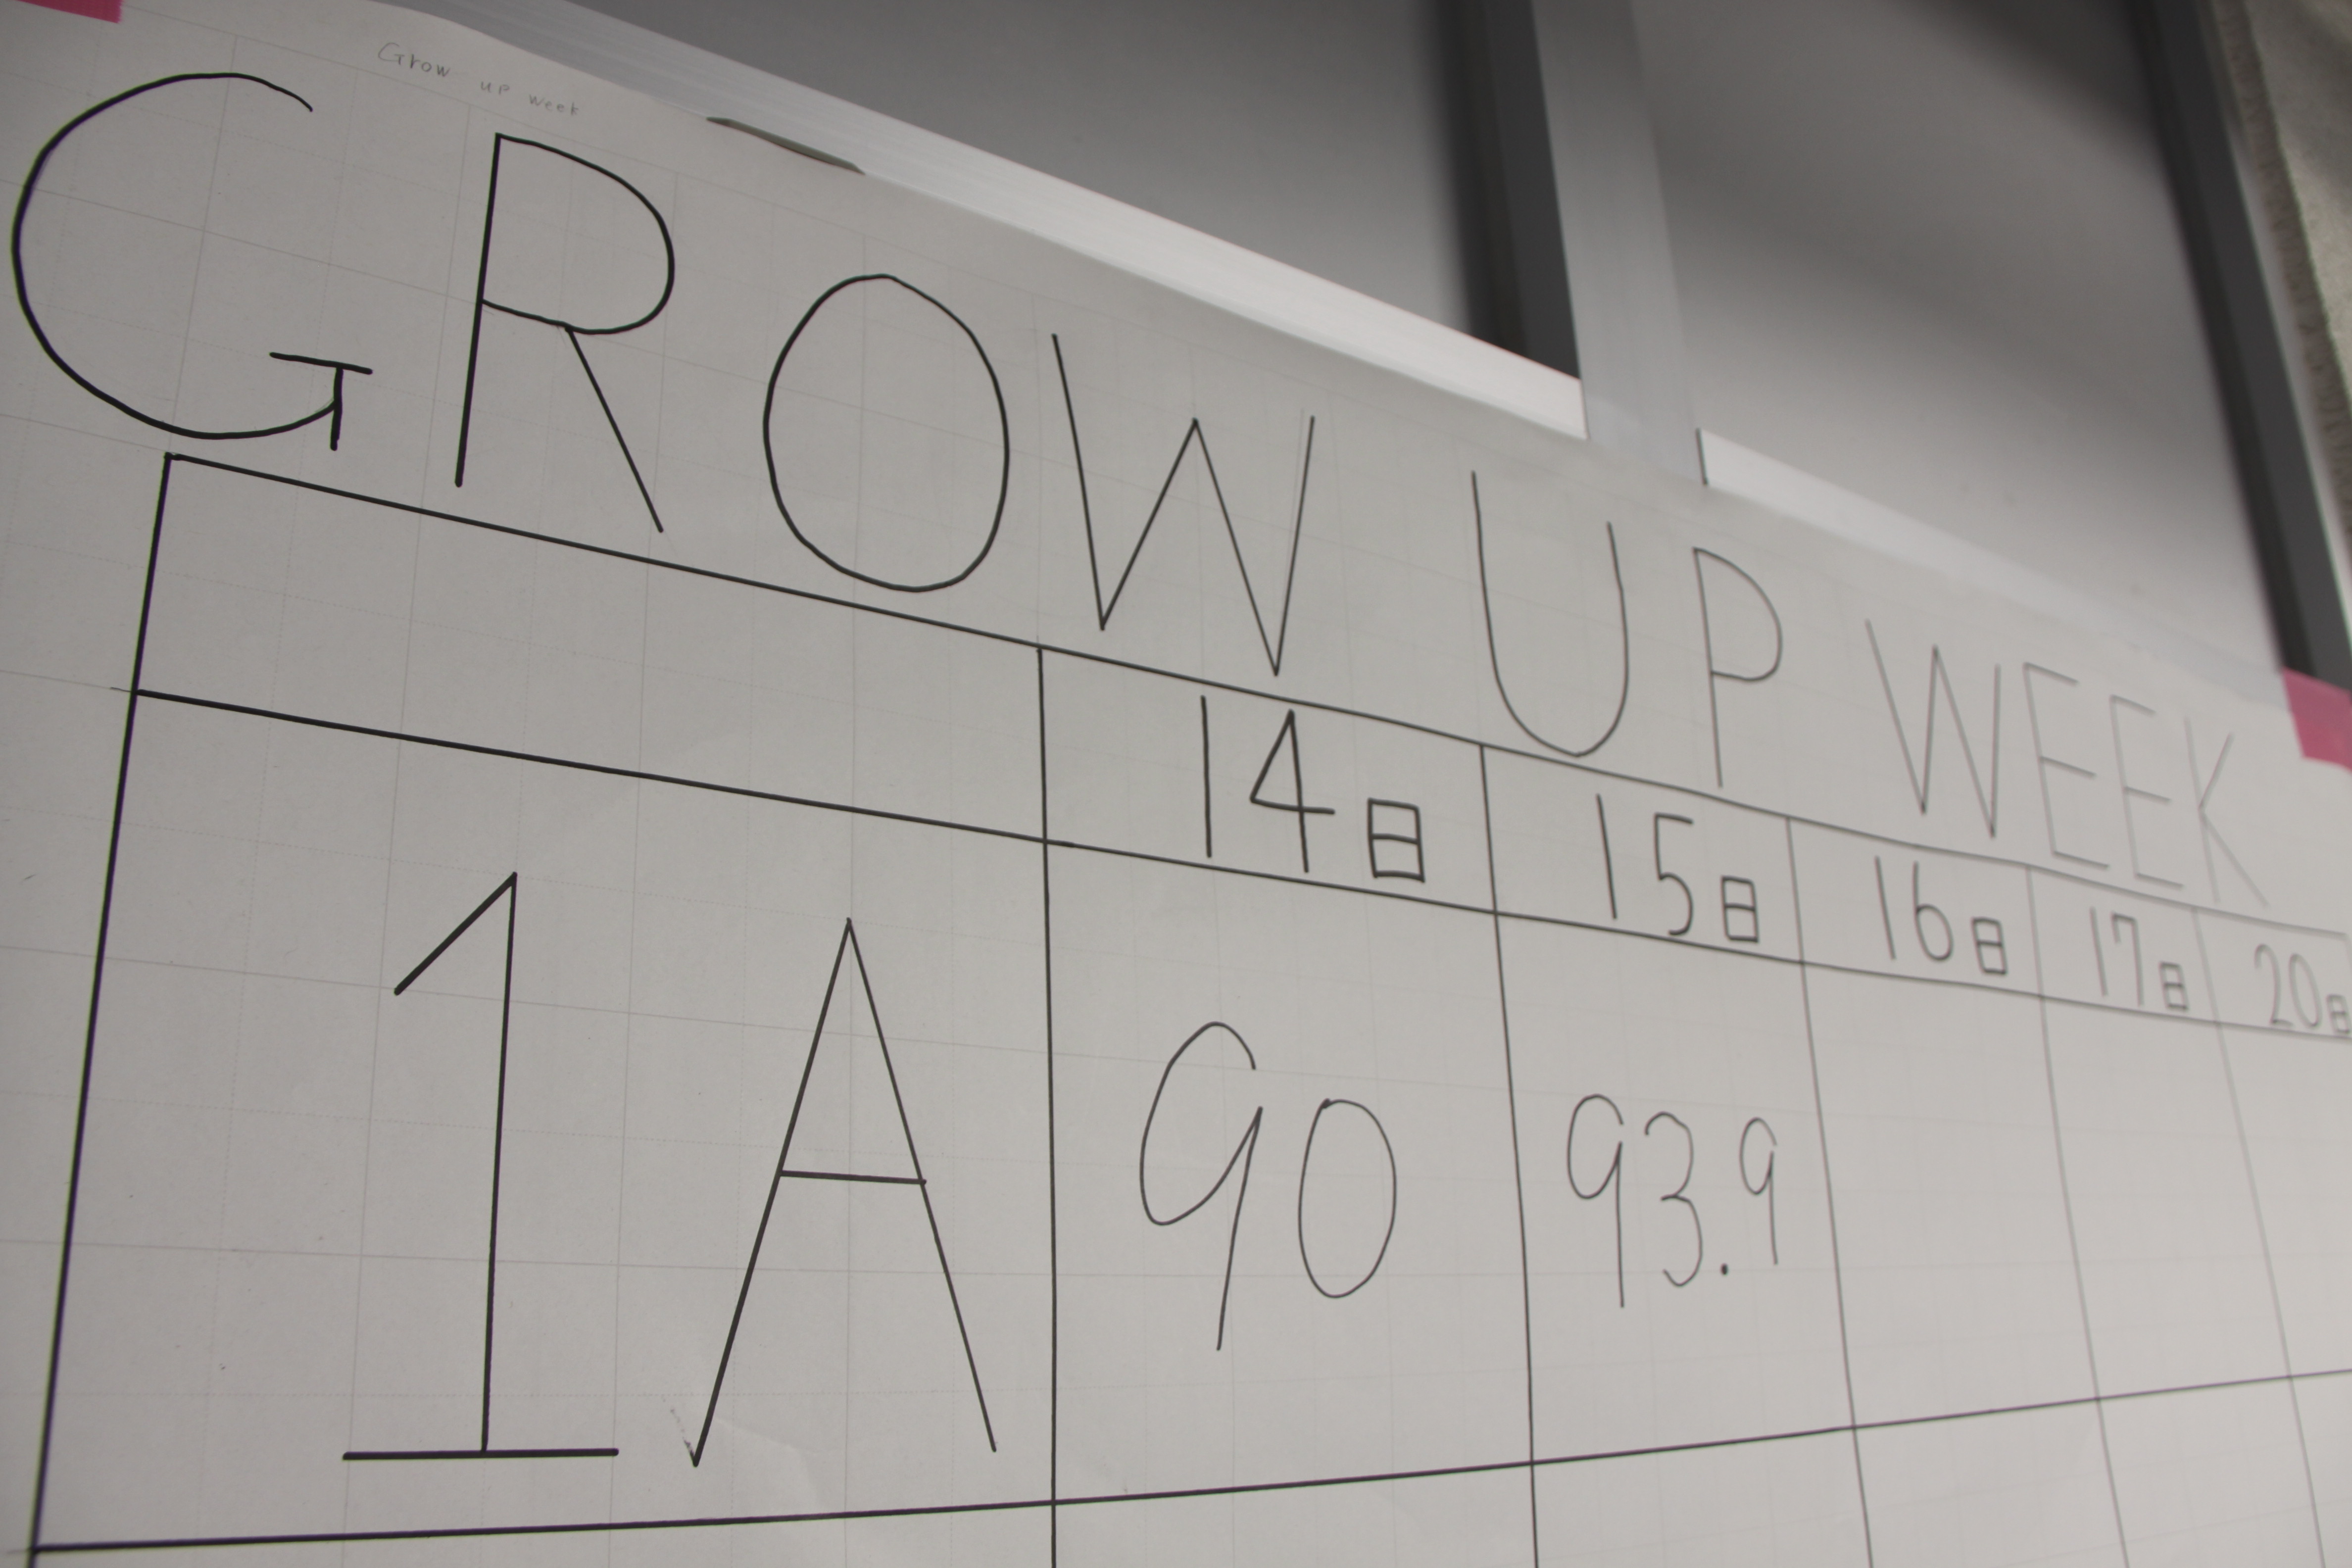 Grow up week
GROW UP WEEK
14日 15日 16日 17日 20日
1A 90 93.9